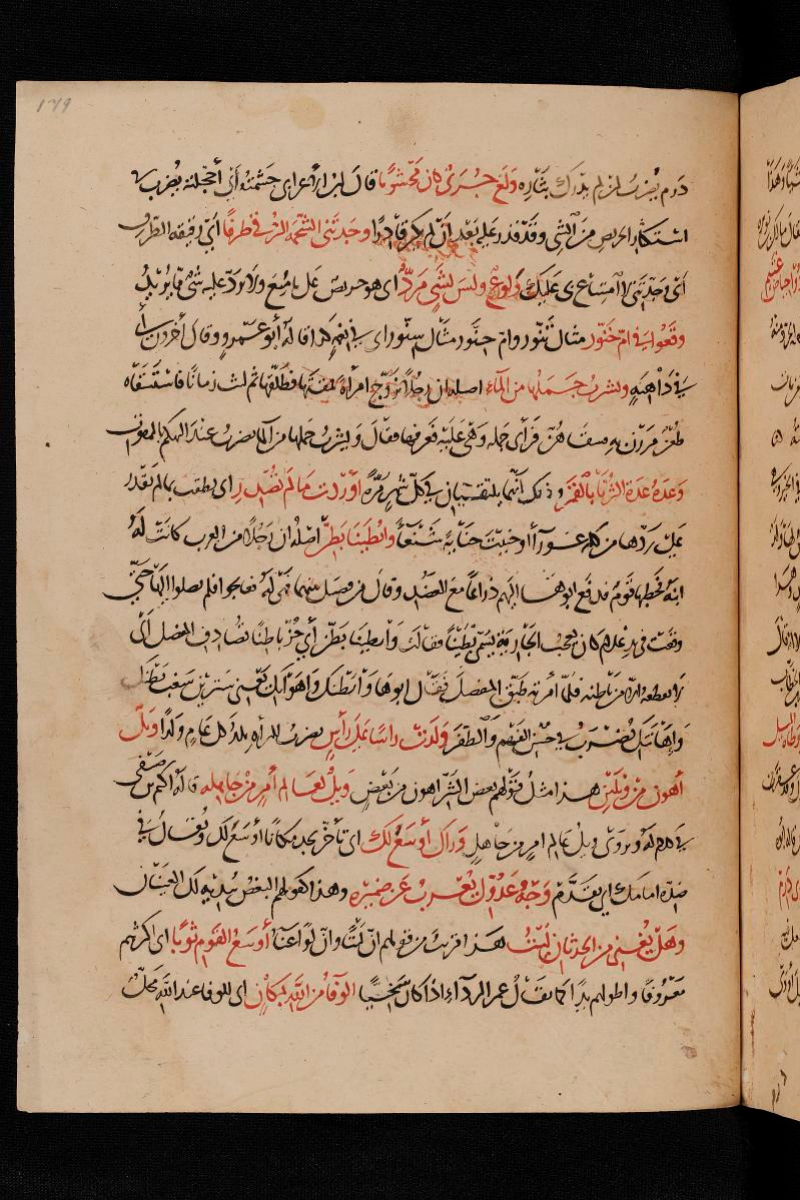 ١٦٩
دوم يضرب لمن لم يدرك بثاره ولغ جرى كان محشوما قال ابن الاعرابى حشمته أى أخجلته يضرب فى
استكثار الحريص من الشى وقد قدر عليه بعد ان لم يكن قادرا وجدتنى الشحمة الرقى طرفا أى رقيقه الطرف
أى وجدتنى لا امتناع بى عليك ولوغ وليس لشى مرد اى هو حريص على ما منع ولا يرد عليه شى مما يريد
وقعوا فى ام خنور مثال تنور وام خنور مثال سنور اى فى نعمة كذا قاله أبو عمرو وقال آخرون أى
فى داهية ويشرب جملها من الماء اصله ان رجلا تزوج امرأة فطلقها ثم لبث زمانا فاستسقاه
ظعن مررن به فرأى جمله وهى عليه فعرفها فقال ويشرب جملها من الما يضرب عند التهكم بالممقوت
وعده عدة الثريا بالقمر وذلك أنهما يلتقيان فى كل شهر مرة اوردت ما لم تصدر اى نطقت بما لم تقدر
على ردها من كلمة عورآ أو جنيت جناية شنعا وابطينا بطن اصله ان رجلا من العرب كانت له
ابنة فخطبها قوم فدفع ابوها اليهم ذراعا مع العضد وقال من فصل بينهما فهى له فعالجوا فلم يصلوا اليها حتى
وقعت فى يد غلام كان يعجب الجارية يسمى بطينا فقالت وابطينا بطن أي حز باطنا تصادف المفصل اى
لا يقطعه الا من باطنه فلما أمرته طبق المفصل فقال ابوها وابطنك واهوانك يعنى سترين سغب بطنك
واهانتك يضرب فى حسن الفهم والظفر ولدت راسا على رأس يضرب للمرأة تلد كل عام ولدا ويل
أهون من ويلين هذا مثل قولهم بعض الشر اهون من بعض ويل لعالم أمر من جاهله قاله اكثم بن صيفى
فى كلام له ويروى ويل عالم امر من جاهل وراك أوسع لك اى تأخر تجد مكانا أوسع لك ويقال فى
ضده امامك اى تقدم وجه عدوك يعرب عن ضميره وهذا كقولهم البغض تبديه لك العينان
وهل يغنى من الحدثان ليت هذا اقرب من قولهم ان ليتا وان لوا عنا أوسع القوم ثوبا اى اكثرهم
معروفا واطولهم يدا كما يقال غمر الردآء اذا كان سخيا الوفا من الله بمكان اى للوفا عند الله محل